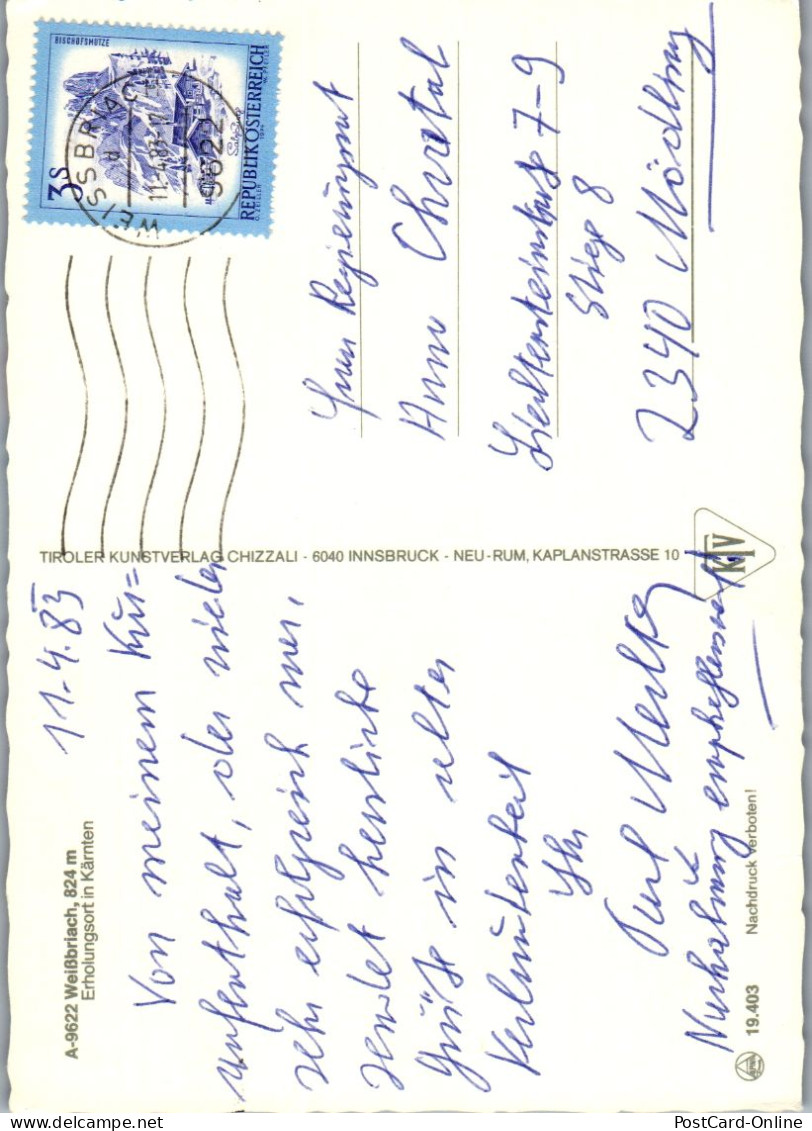 A-9622 Weißbriach, 824 m
Erholungsort in Kärnten
11.4.83
Von meinem Kur=
aufenthalt, der wieder
sehr erfolgreich war,
sendet herzliche
Grüße in alter
Verbundenheit
Ihr
Nachahmung empfehlenswert!
19.403 Nachdruck verboten!
TIROLER KUNSTVERLAG CHIZZALI - 6040 INNSBRUCK - NEU-RUM, KAPLANSTRASSE 10
KTV
BISCHOFSMÜTZE
3S
REPUBLIK ÖSTERREICH
WEISSBRIACH
11.-4.83-17
9622
Herrn Regierungsrat
Liechtensteinstraße 7-9
Stiege 8
2340 Mödling
PostCard-Online.com
PostCard-Online